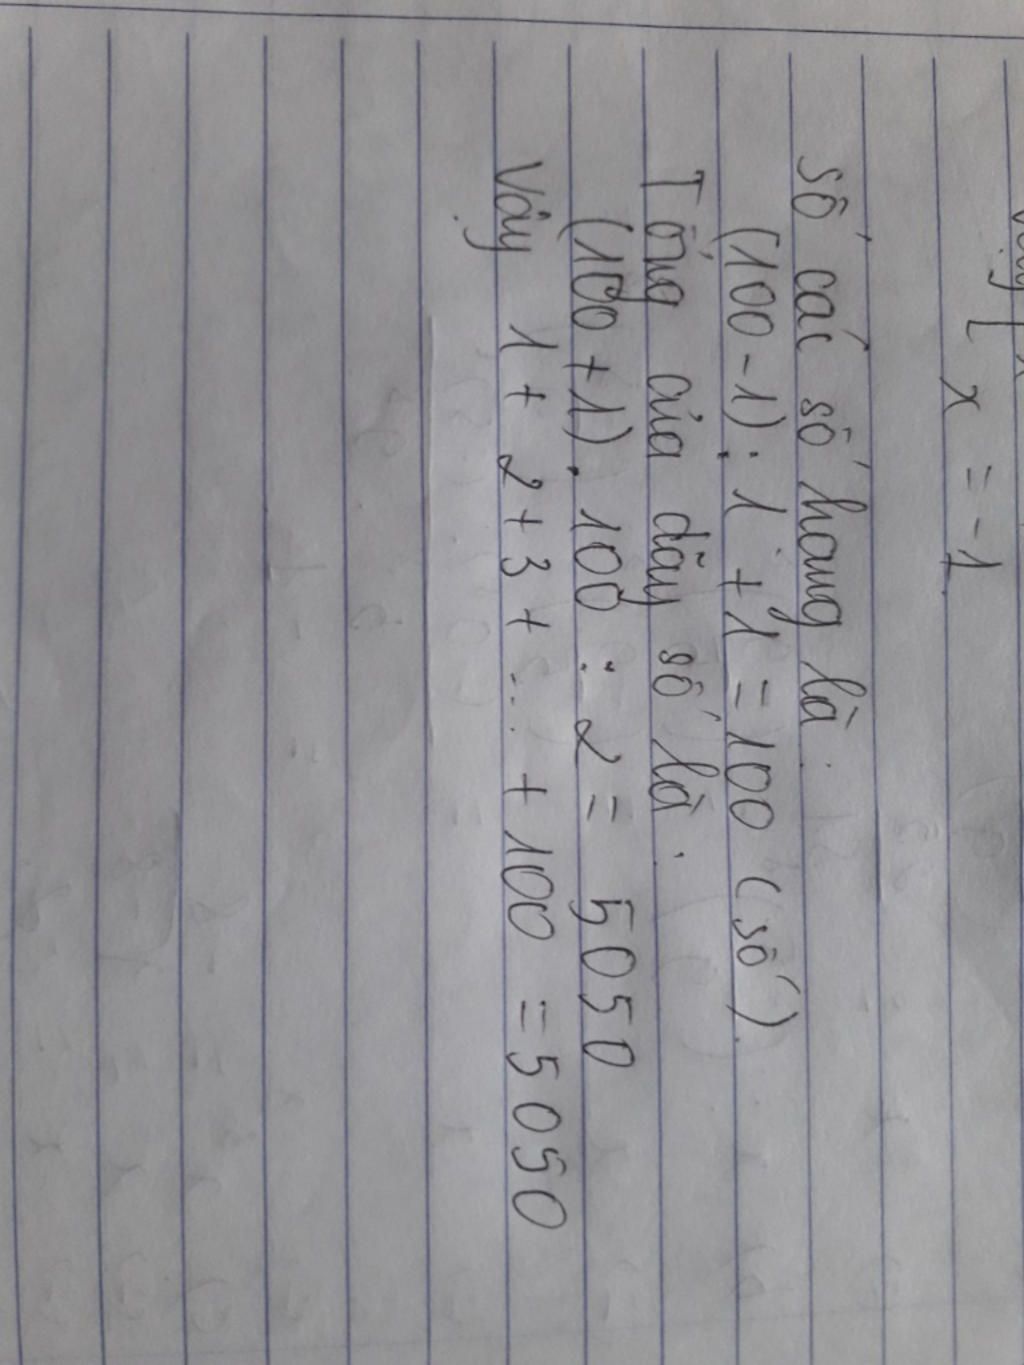 x = -1
Số các số hạng là:
(100 - 1) : 1 + 1 = 100 (số)
Tổng của dãy số là:
(100 + 1) . 100 : 2 = 5050
Vậy 1 + 2 + 3 + ... + 100 = 5050